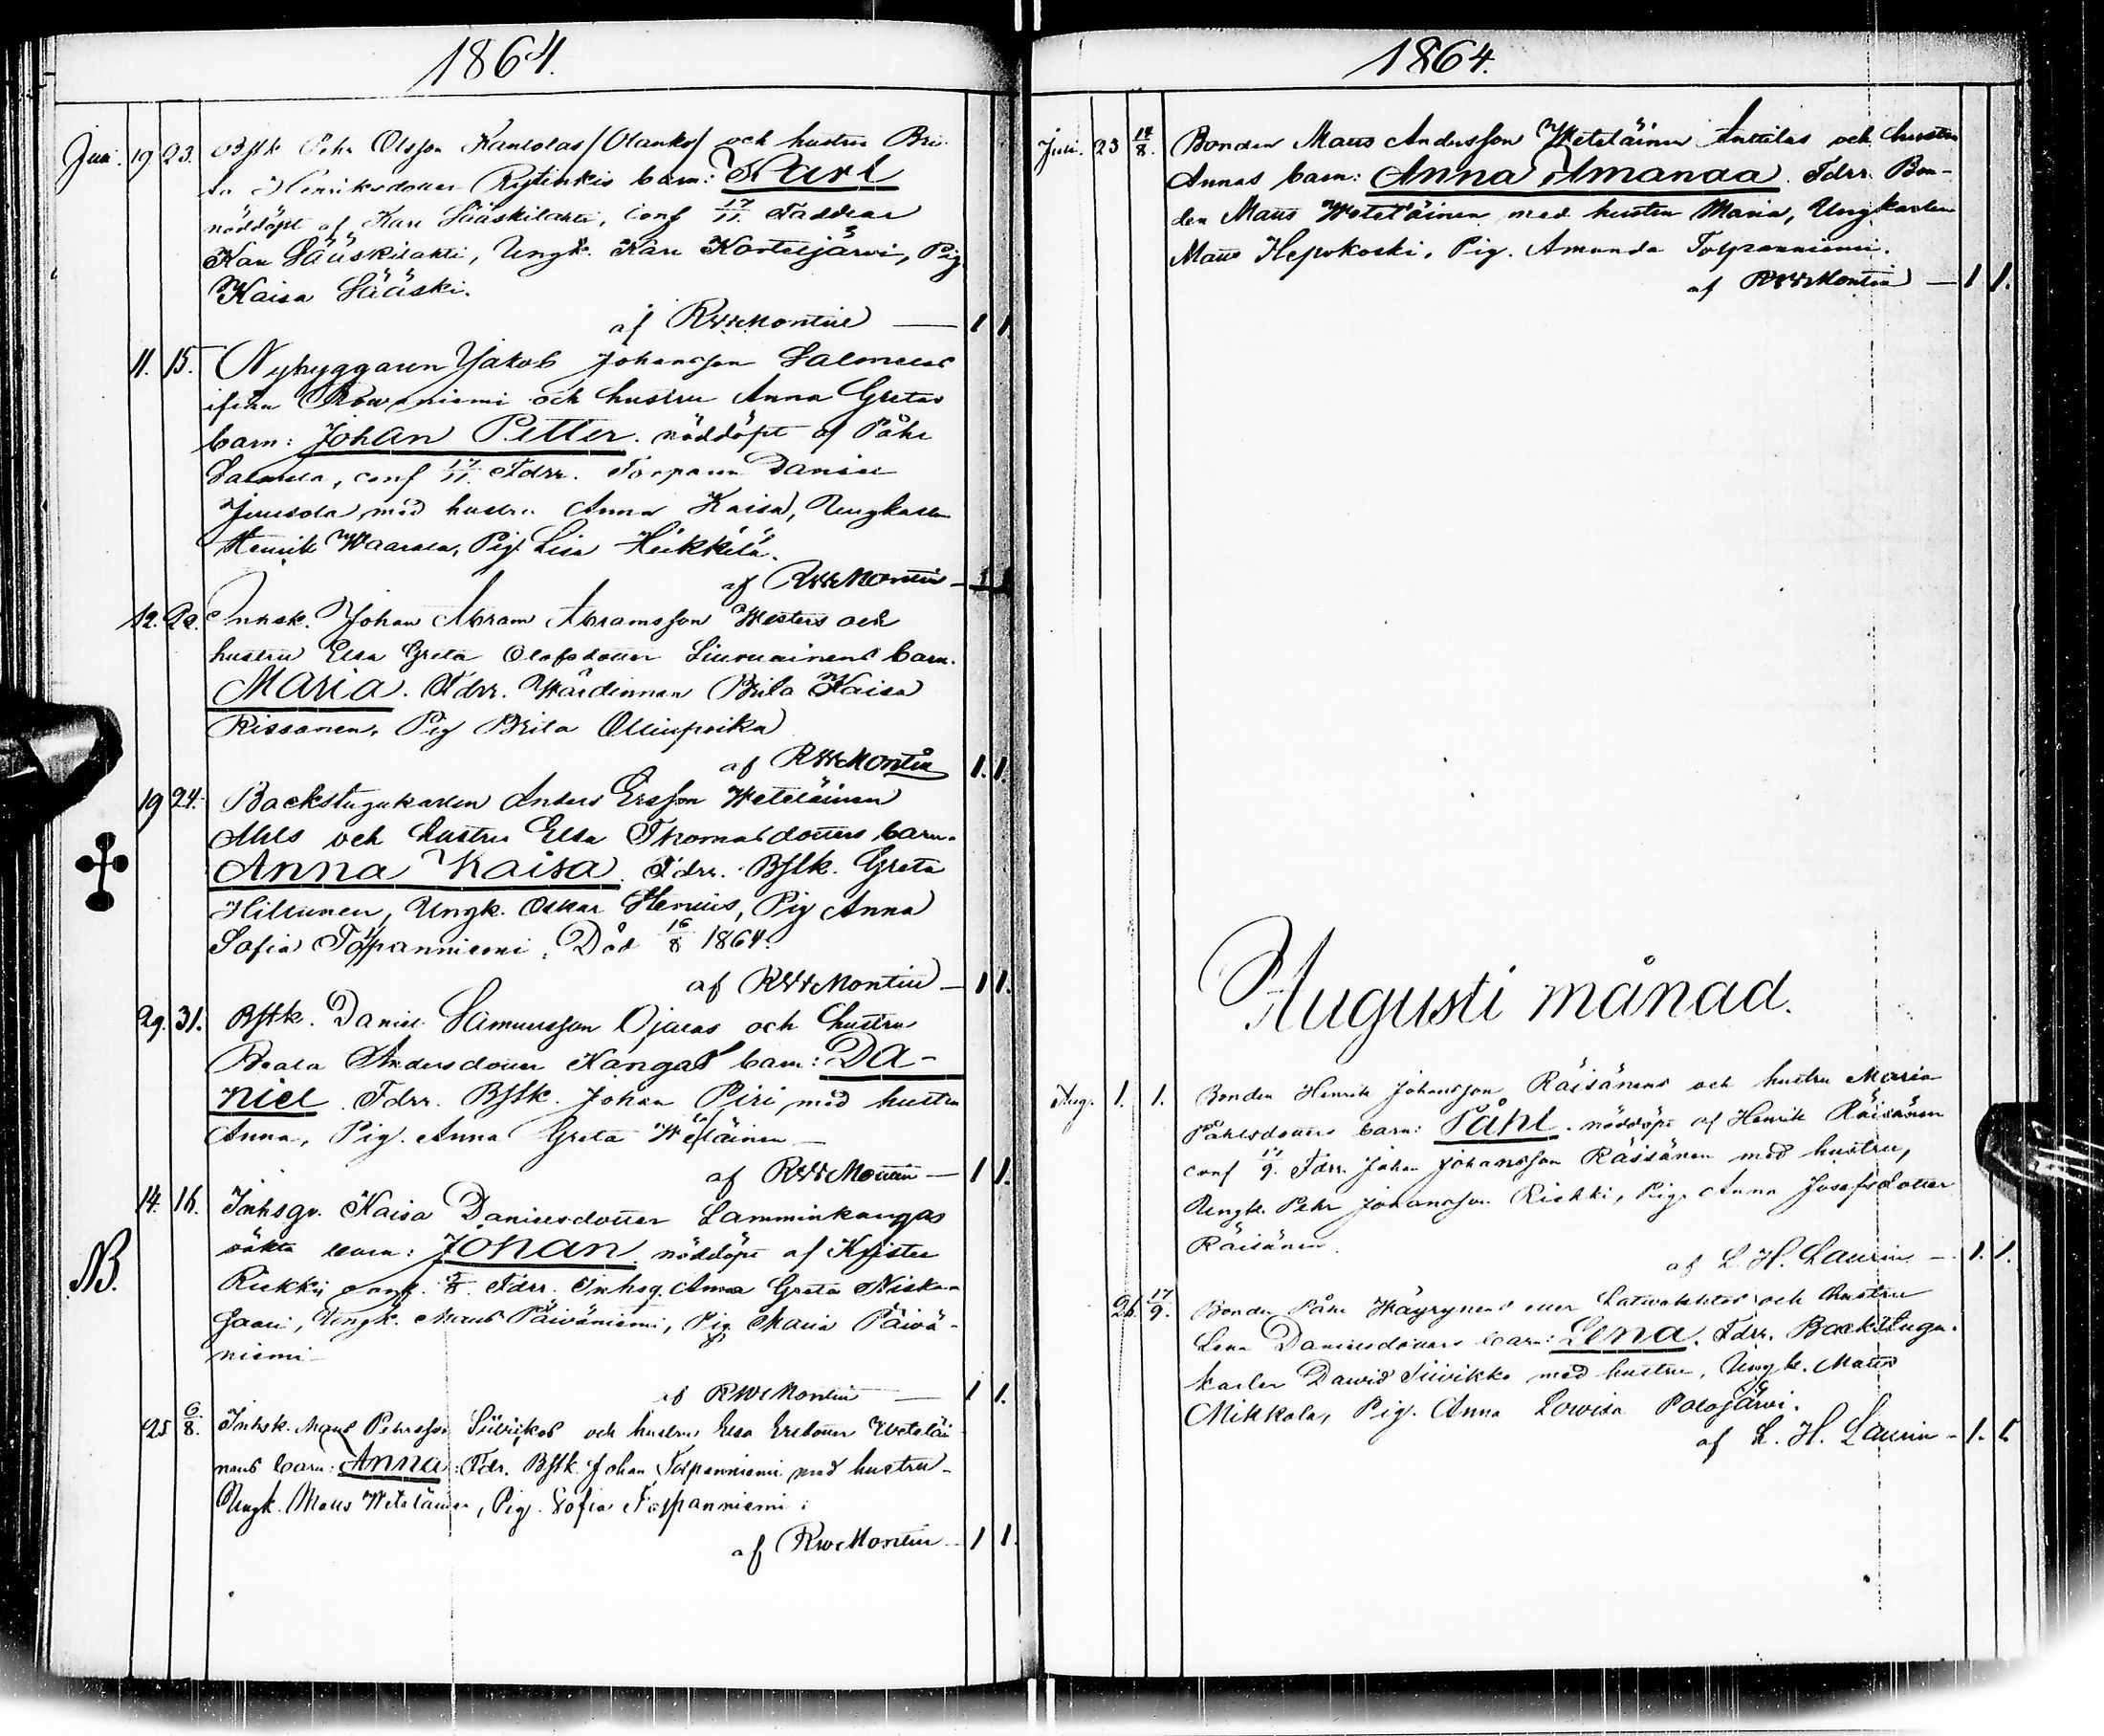 1864.
Juli. 19 23. Bstk Pehr Olsson Kantolas (Olanko) och hustru Bri-
ta Henriksdotter Rytinkis barn: Karl
nöddöpt af Karl Sääskilahti, conf 17/11. Faddrar
Karl Sääskilahti, Ungk. Karl Korteljärvi, Pig.
Kaisa Sääski.
af RWMontin — 1 1.
11. 15. Nybyggaren Jakob Johansson Salmelas
ifrån Rowaniemi och hustru Anna Gretas
barn: Johan Petter. nöddöpt af Påhl
conf 17/11. Fdrr. Torparen Daniel
Juusola med hustru Anna Kaisa, Ungkarlen
Henrik Waarala, Pig. Lisa Heikkilä.
af RWMontin — 1 1
12. Inhsk. Johan Abram Abramsson Westers och
hustru Elsa Greta Olofsdotter Liuvuainens barn.
Maria. Fdrr. Wärdinnan Brita Kaisa
Rissanen, Pig Brita Ollinpoika
af RWMontin 1. 1.
19 24. Backstugukarlen Anders Ersson Weteläinen
Ahls och hustru Elsa Thomasdotters barn.
Anna Kaisa. Fdrr. Bstk. Greta
Hiltunen, Ungk. Oskar Heruis, Pig Anna
Sofia Torpanniemi. Död 16/8 1864.
af RWMontin — 1 1.
29. 31. Bstk. Daniel Samuelsson Ojalas och hustru
Beata Andersdotter Kangas barn: Da-
niel. Fdrr. Bstk. Johan Piri med hustru
Anna, Pig. Anna Greta Weteläinen —
af RWMontin — 1 1.
14. 16. Inhsqv. Kaisa Danielsdotter Lamminkangas
NB. oäkta barn: Johan. nöddöpt af Krister
Riekki, conf. Fdrr. Inhsq. Anna Greta Niska-
saari, Ungk. Matts Päiväniemi, Pig Maria Päivä-
niemi —
af RWMontin — 1 1.
25 6/8. Inhsk. Matts Pehrsson Siivikos och hustru Elsa Ersdotter Weteläi
nens barn: Anna: Fdr. Bstk. Johan Torpanniemi med hustru-
Ungk. Matts Weteläinen, Pig. Sofia Torpanniemi.
af RWMontin — 1 1.
1864.
Juli. 23 14/8. Bonden Matts Andersson Weteläinen Anttilas och hustru
Annas barn: Anna Amanda. Fdrr. Bon-
den Matts Weteläinen med hustru Maria, Ungkarlen
Matts Hepokoski, Pig. Amanda Torpanniemi.
af RWMontin — 1 1.
Augusti månad.
Aug. 1. 1. Bonden Henrik Johansson Räisänens och hustru Maria
Påhlsdotters barn: Påhl. nöddöpt af Henrik Räisänen
conf 17/9. Fdrr. Johan Johansson Räisänen med hustru,
Ungk. Pehr Johansson Riekki, Pig. Anna Josefsdotter
Räisänen.
af L. H. Laurin — 1. 1.
26. 17/9. Bonden Påhl Häyrynens eller Latvalehtos och hustru
Lena Danielsdotters barn: Lena. Fdrr. Backstugu-
karlen Dawid Siivikko med hustru, Ungk. Matts
Mikkola, Pig. Anna Lowisa Palojärvi.
af L. H. Laurin — 1. 1.